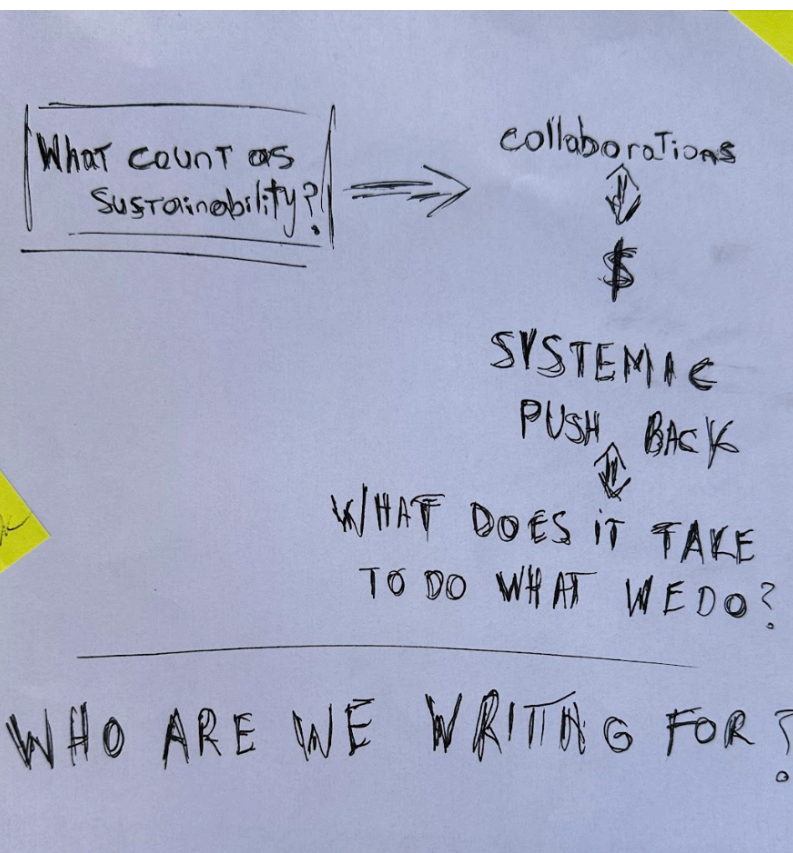 What count as
Sustainability?
collaborations
$
SYSTEMIC
PUSH BACK
WHAT DOES iT TAKE
TO DO WHAT WE DO?
WHO ARE WE WRITING FOR?